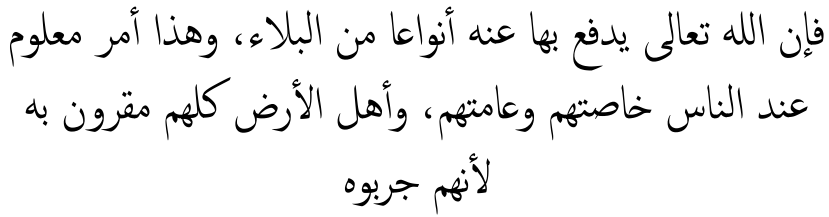 فإن الله تعالى يدفع بها عنه أنواعا من البلاء، وهذا أمر معلوم
عند الناس خاصتهم وعامتهم، وأهل الأرض كلهم مقرون به
لأنهم جربوه